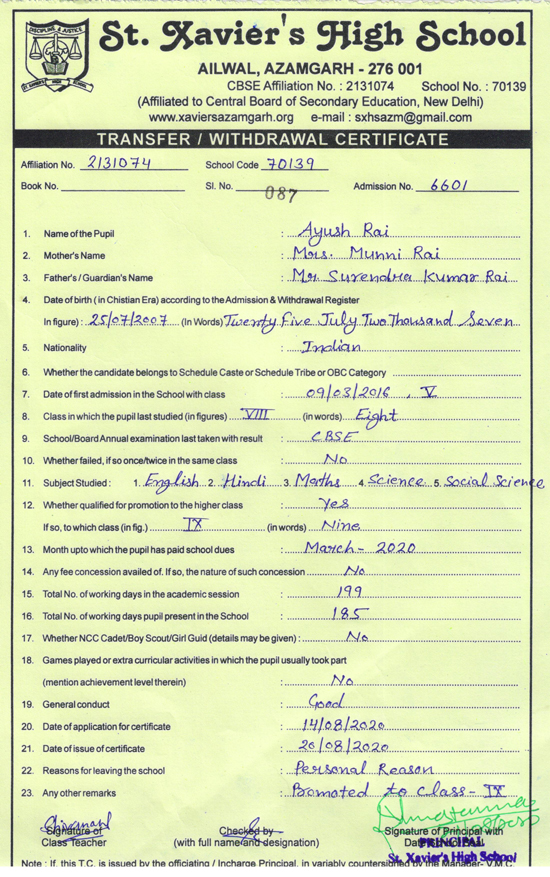 DISCIPLINE & JUSTICE
ST. XAVIER'S HIGH SCHOOL
St. Xavier's High School
AILWAL, AZAMGARH - 276 001
CBSE Affiliation No. : 2131074 School No. : 70139
(Affiliated to Central Board of Secondary Education, New Delhi)
www.xaviersazamgarh.org e-mail : sxhsazm@gmail.com
TRANSFER / WITHDRAWAL CERTIFICATE
Affiliation No. 2131074 School Code 70139
Book No. Sl. No. 087 Admission No. 6601
1. Name of the Pupil : Ayush Rai
2. Mother's Name : Mrs. Munni Rai
3. Father's / Guardian's Name : Mr. Surendra Kumar Rai
4. Date of birth ( in Chistian Era) according to the Admission & Withdrawal Register
In figure) : 25/07/2007 (In Words) Twenty Five July Two Thousand Seven
5. Nationality : Indian
6. Whether the candidate belongs to Schedule Caste or Schedule Tribe or OBC Category
7. Date of first admission in the School with class : 09/03/2016 , V
8. Class in which the pupil last studied (in figures) VIII (in words) Eight
9. School/Board Annual examination last taken with result : CBSE
10. Whether failed, if so once/twice in the same class : No
11. Subject Studied : 1. English 2. Hindi 3. Maths 4. Science 5. Social Science
12. Whether qualified for promotion to the higher class : Yes
If so, to which class (in fig.) IX (in words) Nine
13. Month upto which the pupil has paid school dues : March - 2020
14. Any fee concession availed of. If so, the nature of such concession No
15. Total No. of working days in the academic session : 199
16. Total No. of working days pupil present in the School : 185
17. Whether NCC Cadet/Boy Scout/Girl Guid (details may be given) : No
18. Games played or extra curricular activities in which the pupil usually took part
(mention achievement level therein) : No
19. General conduct : Good
20. Date of application for certificate : 14/08/2020
21. Date of issue of certificate : 20/08/2020
22. Reasons for leaving the school : Personal Reason
23. Any other remarks : Promoted to Class - IX
Signature of Checked by Signature of Principal with
Class Teacher (with full name and designation) Date
PRINCIPAL
St. Xavier's High School
Note : If, this T.C. is issued by the officiating / Incharge Principal, in variably countersigned by the Manager- V.M.C.